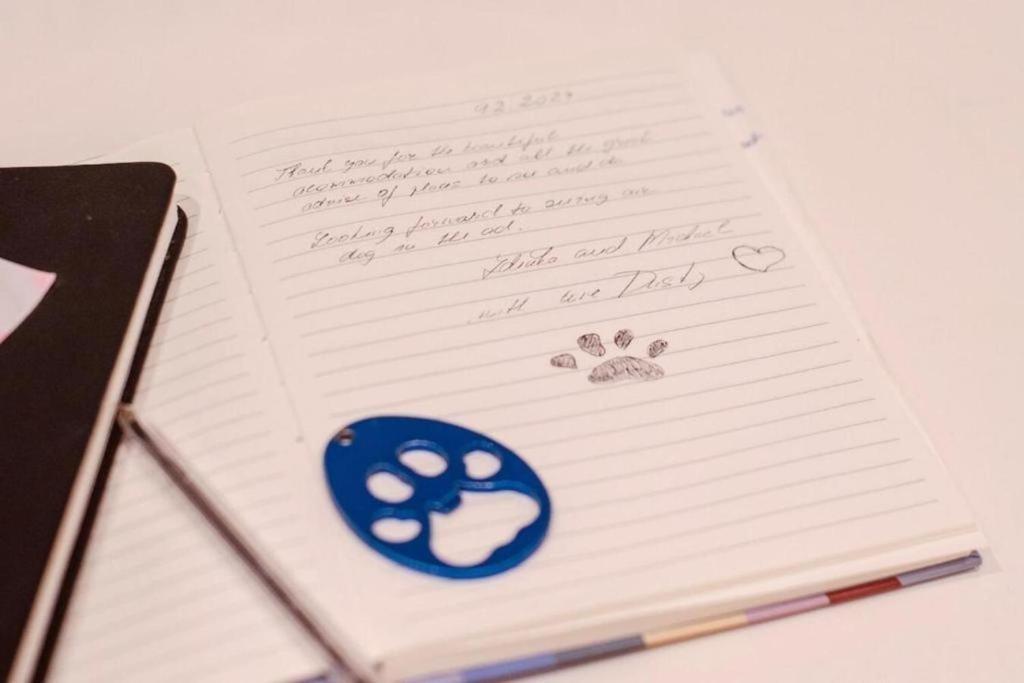 9.2.2024
Thank you for the beautiful
acommodation and all the great
advise of places to see and do
Looking forward to seeing our
dog in the ad.
and Michael
with love Dusty